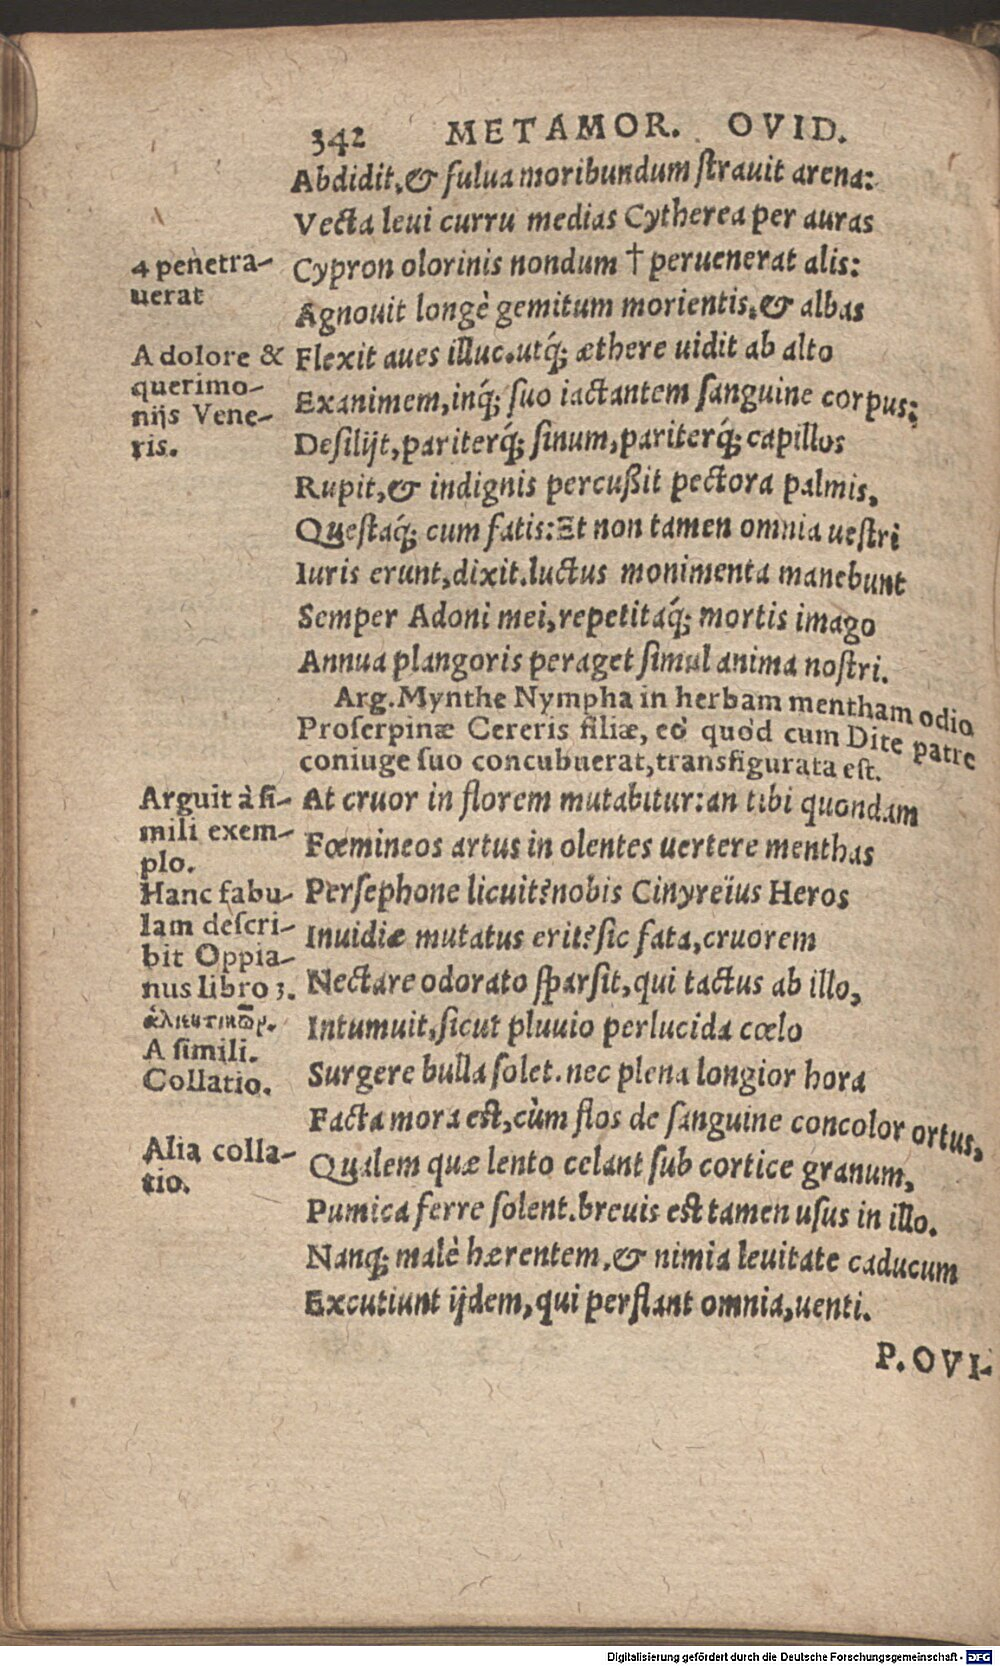 342 METAMOR. OVID.
Abdidit, & fulua moribundum strauit arena:
Vecta leui curru medias Cytherea per auras
4 penetra-
uerat
Cypron olorinis nondum † peruenerat alis:
Agnouit longè gemitum morientis, & albas
A dolore &
querimo-
nijs Vene-
ris.
Flexit aues illuc. utq́; æthere uidit ab alto
Exanimem, inq́; suo iactantem sanguine corpus:
Desilijt, pariterq́; sinum, pariterq́; capillos
Rupit, & indignis percußit pectora palmis,
Questaq́; cum fatis: Et non tamen omnia uestri
Iuris erunt, dixit. luctus monimenta manebunt
Semper Adoni mei, repetitaq́; mortis imago
Annua plangoris peraget simul anima nostri.
Arg. Mynthe Nympha in herbam mentham odio
Proserpinæ Cereris filiæ, eò quòd cum Dite patre
coniuge suo concubuerat, transfigurata est.
Arguit à si-
mili exem-
plo.
Hanc fabu-
lam descri-
bit Oppia-
nus libro 3.
ἁλιευτικῶν.
A simili.
Collatio.
At cruor in florem mutabitur: an tibi quondam
Fœmineos artus in olentes uertere menthas
Persephone licuit? nobis Cinyreïus Heros
Inuidiæ mutatus erit? sic fata, cruorem
Nectare odorato sparsit, qui tactus ab illo,
Intumuit, sicut pluuio perlucida cœlo
Surgere bulla solet. nec plena longior hora
Facta mora est, cùm flos de sanguine concolor ortus,
Alia colla-
tio.
Qualem quæ lento celant sub cortice granum,
Pumica ferre solent. breuis est tamen usus in illo.
Nanq; malè hærentem, & nimia leuitate caducum
Excutiunt ijdem, qui perflant omnia, uenti.
P. OVI-
Digitalisierung gefördert durch die Deutsche Forschungsgemeinschaft - DFG